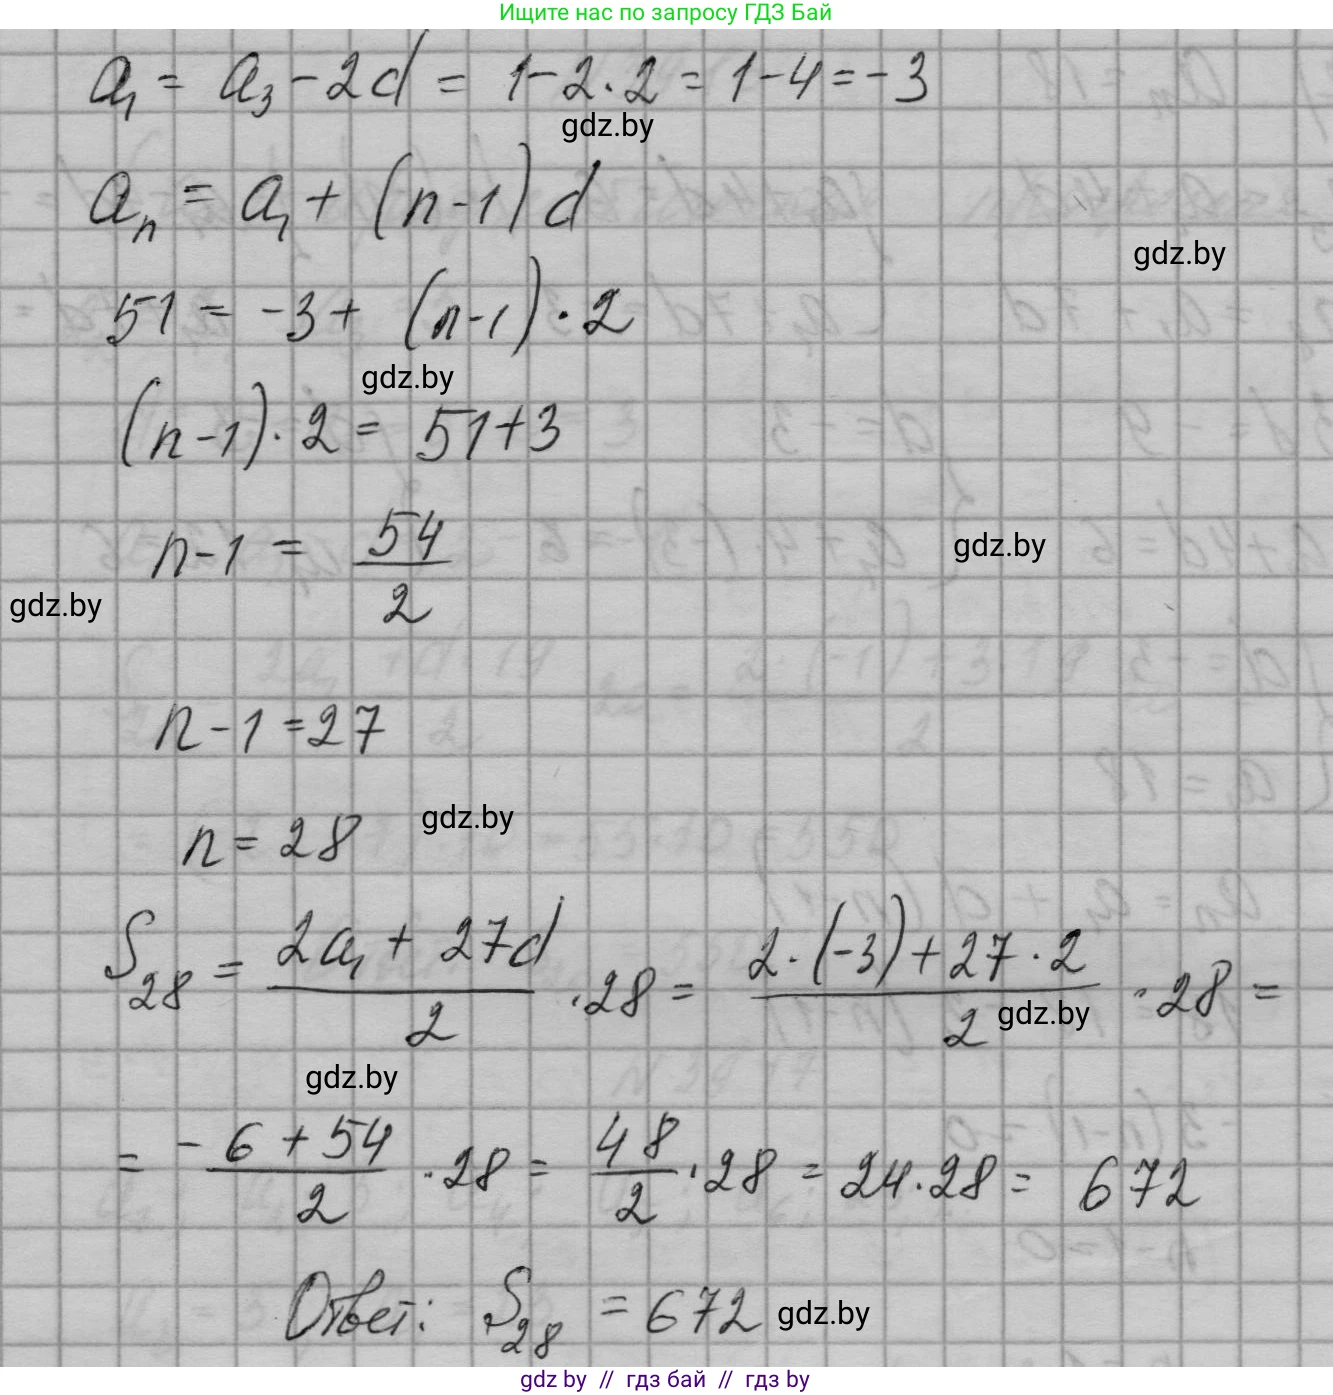 Ищите нас по запросу ГДЗ Бай
a₁ = a₃ - 2d = 1 - 2·2 = 1 - 4 = -3
gdz.by
aₙ = a₁ + (n-1)d
gdz.by
51 = -3 + (n-1)·2
gdz.by
(n-1)·2 = 51+3
n-1 = 54/2
gdz.by
gdz.by
n-1 = 27
n = 28
gdz.by
S₂₈ = (2a₁ + 27d)/2 ·28 = (2·(-3) + 27·2)/2 ·28 =
gdz.by
gdz.by
= (-6 + 54)/2 ·28 = 48/2 ·28 = 24·28 = 672
Ответ: S₂₈ = 672
gdz.by
gdz by // гдз бай // gdz by